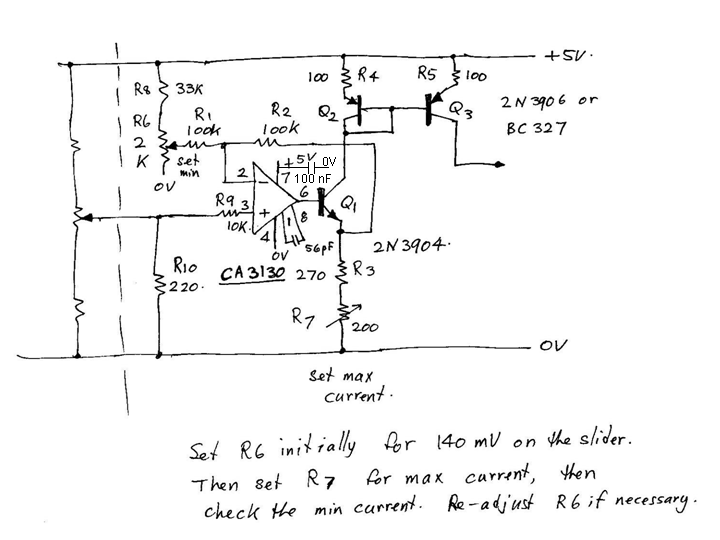 +5V.
R8 33K
100 R4
R5 100
R6
2
K
R1
100k
R2
100k
Q2
Q3
2N3906 or
BC 327
set
min
0V
+5V 0V
7 100 nF
2
-
6
Q1
R9 3
10K.
+
1 8
4
0V
56pF
2N3904.
R10
220.
CA3130
270 R3
R7
200
0V
Set max
current.
Set R6 initially for 140 mV on the slider.
Then set R7 for max current, then
check the min current. Re-adjust R6 if necessary.